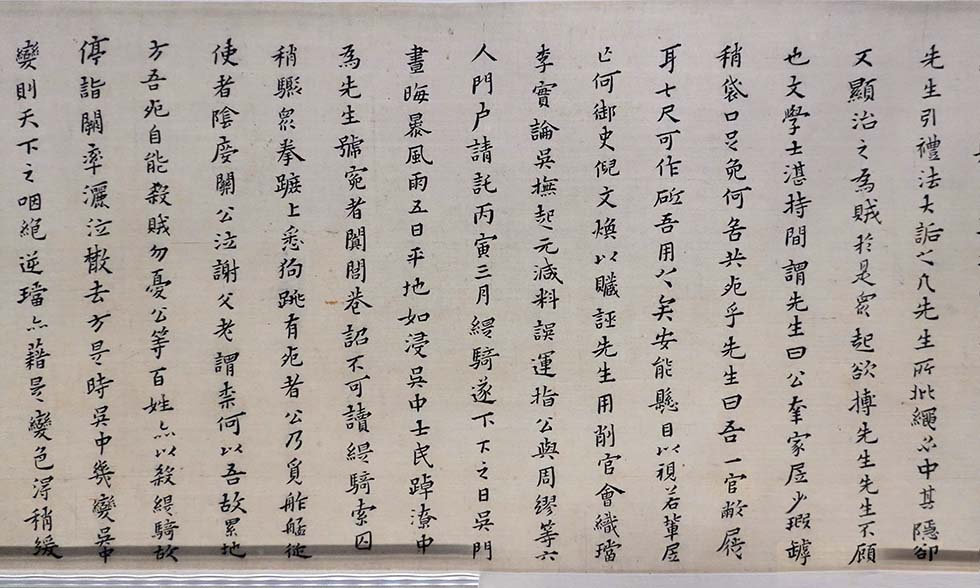 先生引禮法大詬之凡先生所批繩必中其隱卻
又顯治之為賊於是眾起欲摶先生先生不顧
也文學士湛持間謂先生曰公奉家居少瑕罅
稍袋口足免何苦共死乎先生曰吾一官敝屣
耳七尺可作斫吾用以矣安能懸目以視若輩居
亡何御史倪文煥以贜誣先生用削官會織璫
李實論吳撫起元減料誤運指公與周繆等六
人門户請託丙寅三月緹騎遂下下之日吳門
晝晦暴風雨五日平地如浸吳中士民踔潦中
為先生號冤者闐閭巷詔不可讀緹騎索囚
稍驟眾拳蹠上悉狗跳有死者公乃負舴艋從
使者陰度關公泣謝父老謂柰何以吾故累地
方吾死自能殺賊勿憂公等百姓亦以殺緹騎故
停詣闕率灑泣散去方是時吳中幾變吳中
變則天下之咽絕逆璫亦藉是變色得稍緩